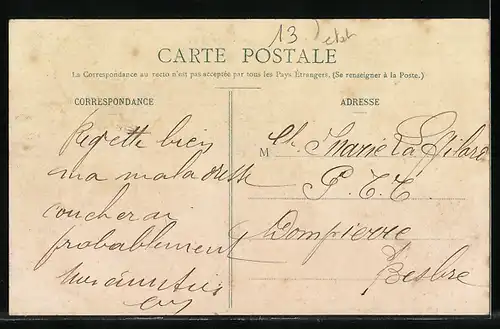 13
CARTE POSTALE
La Correspondance au recto n'est pas acceptée par tous les Pays Étrangers. (Se renseigner à la Poste.)
CORRESPONDANCE
Regrette bien
ma maladresse
coucherai
probablement
ADRESSE
M Marie La
P. T. T.
Dompierre
s/
Besbre